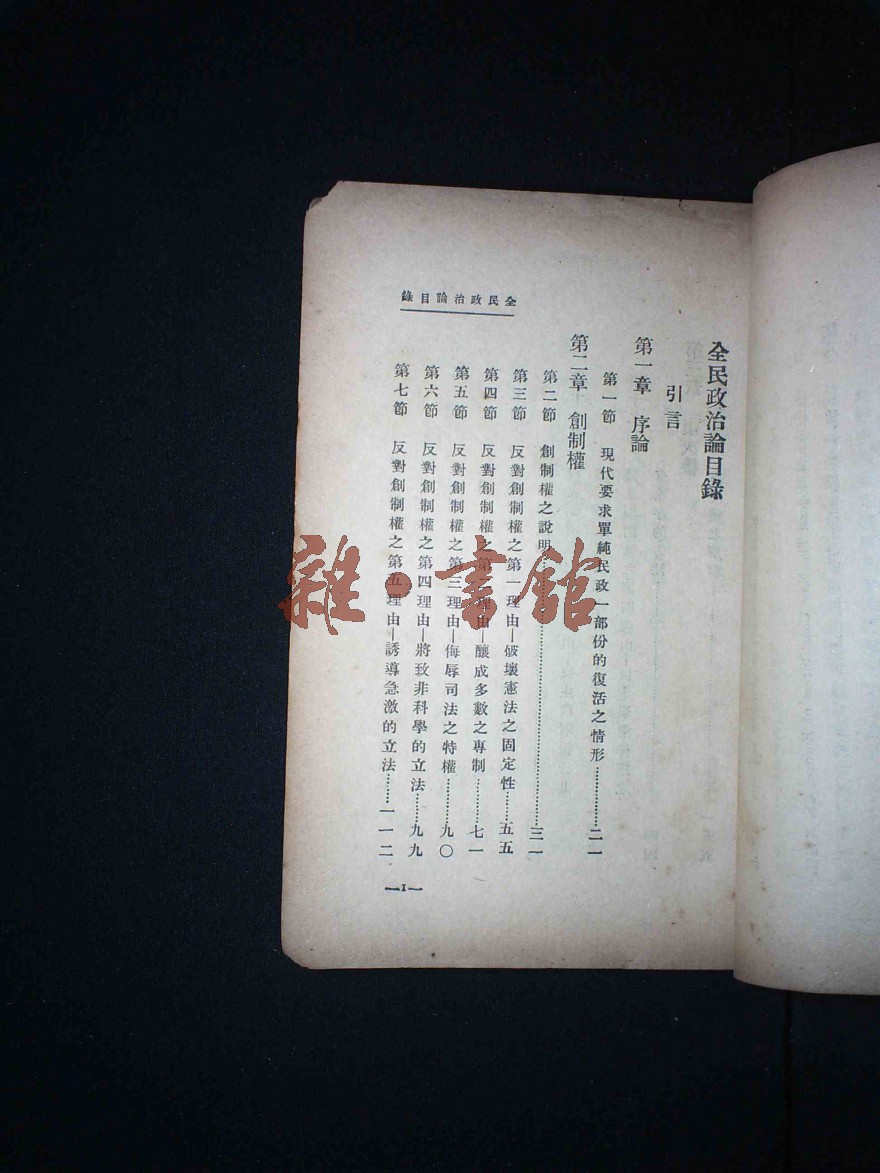 全民政治論目錄
引言
第一章 序論
第一節 現代要求單純民政一部份的復活之情形⋯⋯⋯二一
第二章 創制權
第二節 創制權之說明⋯⋯⋯⋯⋯⋯⋯⋯⋯⋯⋯⋯三一
第三節 反對創制權之第一理由—破壞憲法之固定性⋯⋯五五
第四節 反對創制權之第二理由—釀成多數之專制⋯⋯⋯七一
第五節 反對創制權之第三理由—侮辱司法之特權⋯⋯⋯九〇
第六節 反對創制權之第四理由—將致非科學的立法⋯⋯九九
第七節 反對創制權之第五理由—誘導急激的立法⋯⋯一一二
全民政治論目錄
—1—
雜·書館